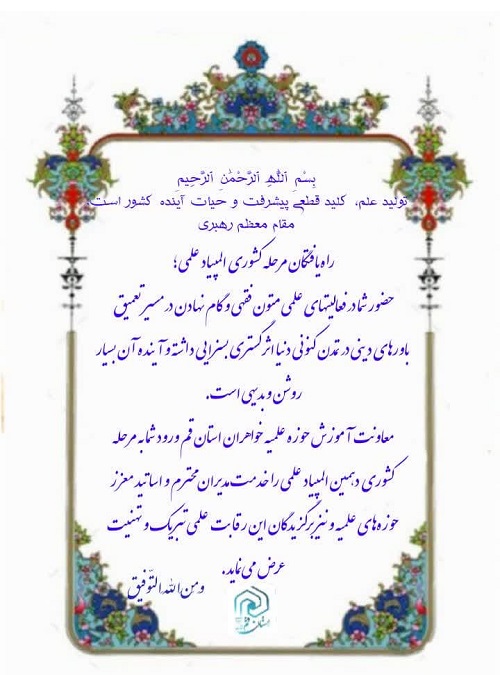 بِسْمِ اللَّهِ الرَّحْمٰنِ الرَّحِیمِ
تولید علم، کلید قطعی پیشرفت و حیات آینده کشور است؛
مقام معظم رهبری
راه یافتگان مرحله کشوری المپیاد علمی؛
حضور شما در فعالیتهای علمی متون فقهی و گام نهادن در مسیر تعمیق
باورهای دینی در تمدن کنونی دنیا اثر گستری بسزایی داشته و آینده آن بسیار
روشن و بدیهی است.
معاونت آموزش حوزه علمیه خواهران استان قم ورود شما به مرحله
کشوری دهمین المپیاد علمی را خدمت مدیران محترم و اساتید معزز
حوزه‌های علمیه و نیز برگزیدگان این رقابت علمی تبریک و تهنیت
عرض می‌نماید.
ومن الله التّوفیق
استان قم